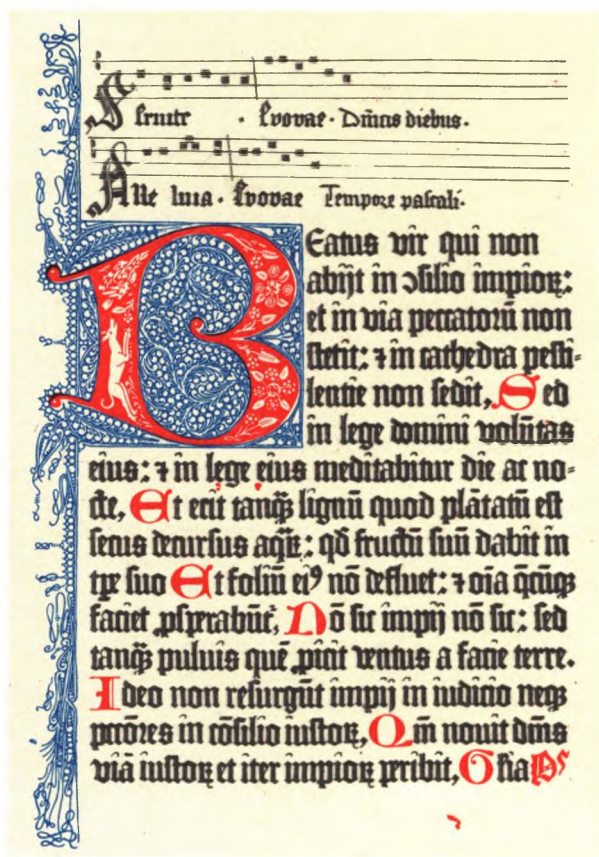 Seruite . Euouae . Dn̄icis diebus.
Alle luia . Euouae Tempore pascali.
Beatus vir qui non
abijt in ꝯsilio impioꝝ:
et in via peccatorū non
stetit: ⁊ in cathedra pesti=
lentie non sedit, Sed
in lege domini volūtas
eius: ⁊ in lege eius meditabitur die ac no=
cte, Et erit tanqꝫ lignū quod plātatū est
secus decursus aqꝝ: qd̄ fructū suū dabit in
tꝑe suo Et foliū eiꝰ nō defluet: ⁊ oīa q̄cūqꝫ
faciet ꝓsperabūt᷑, Nō sic impij nō sic: sed
tanqꝫ puluis quē ꝓicit ventus a facie terre.
Ideo non resurgūt impij in iudicio neqꝫ
pctōres in cōsilio iustoꝝ, Qm̄ nouit dn̄s
viā iustoꝝ et iter impioꝝ peribit, Glīa Ps